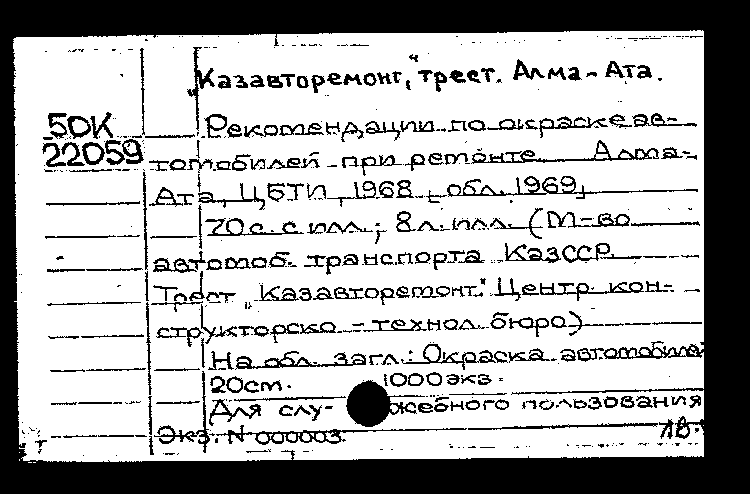 „Казавторемонт,“ трест. Алма-Ата.
50К
22059
Рекомендации по окраске ав-
томобилей при ремонте. Алма-
Ата, ЦБТИ, 1968 [обл. 1969]
70 с. с илл.; 8 л. илл. (М-во
автомоб. транспорта КазССР.
Трест „Казавторемонт." Центр. кон-
структорско-технол. бюро)
На обл. загл.: Окраска автомобилей
20 см. 1000 экз.
Для слу-жебного пользования
Экз. N 000003.